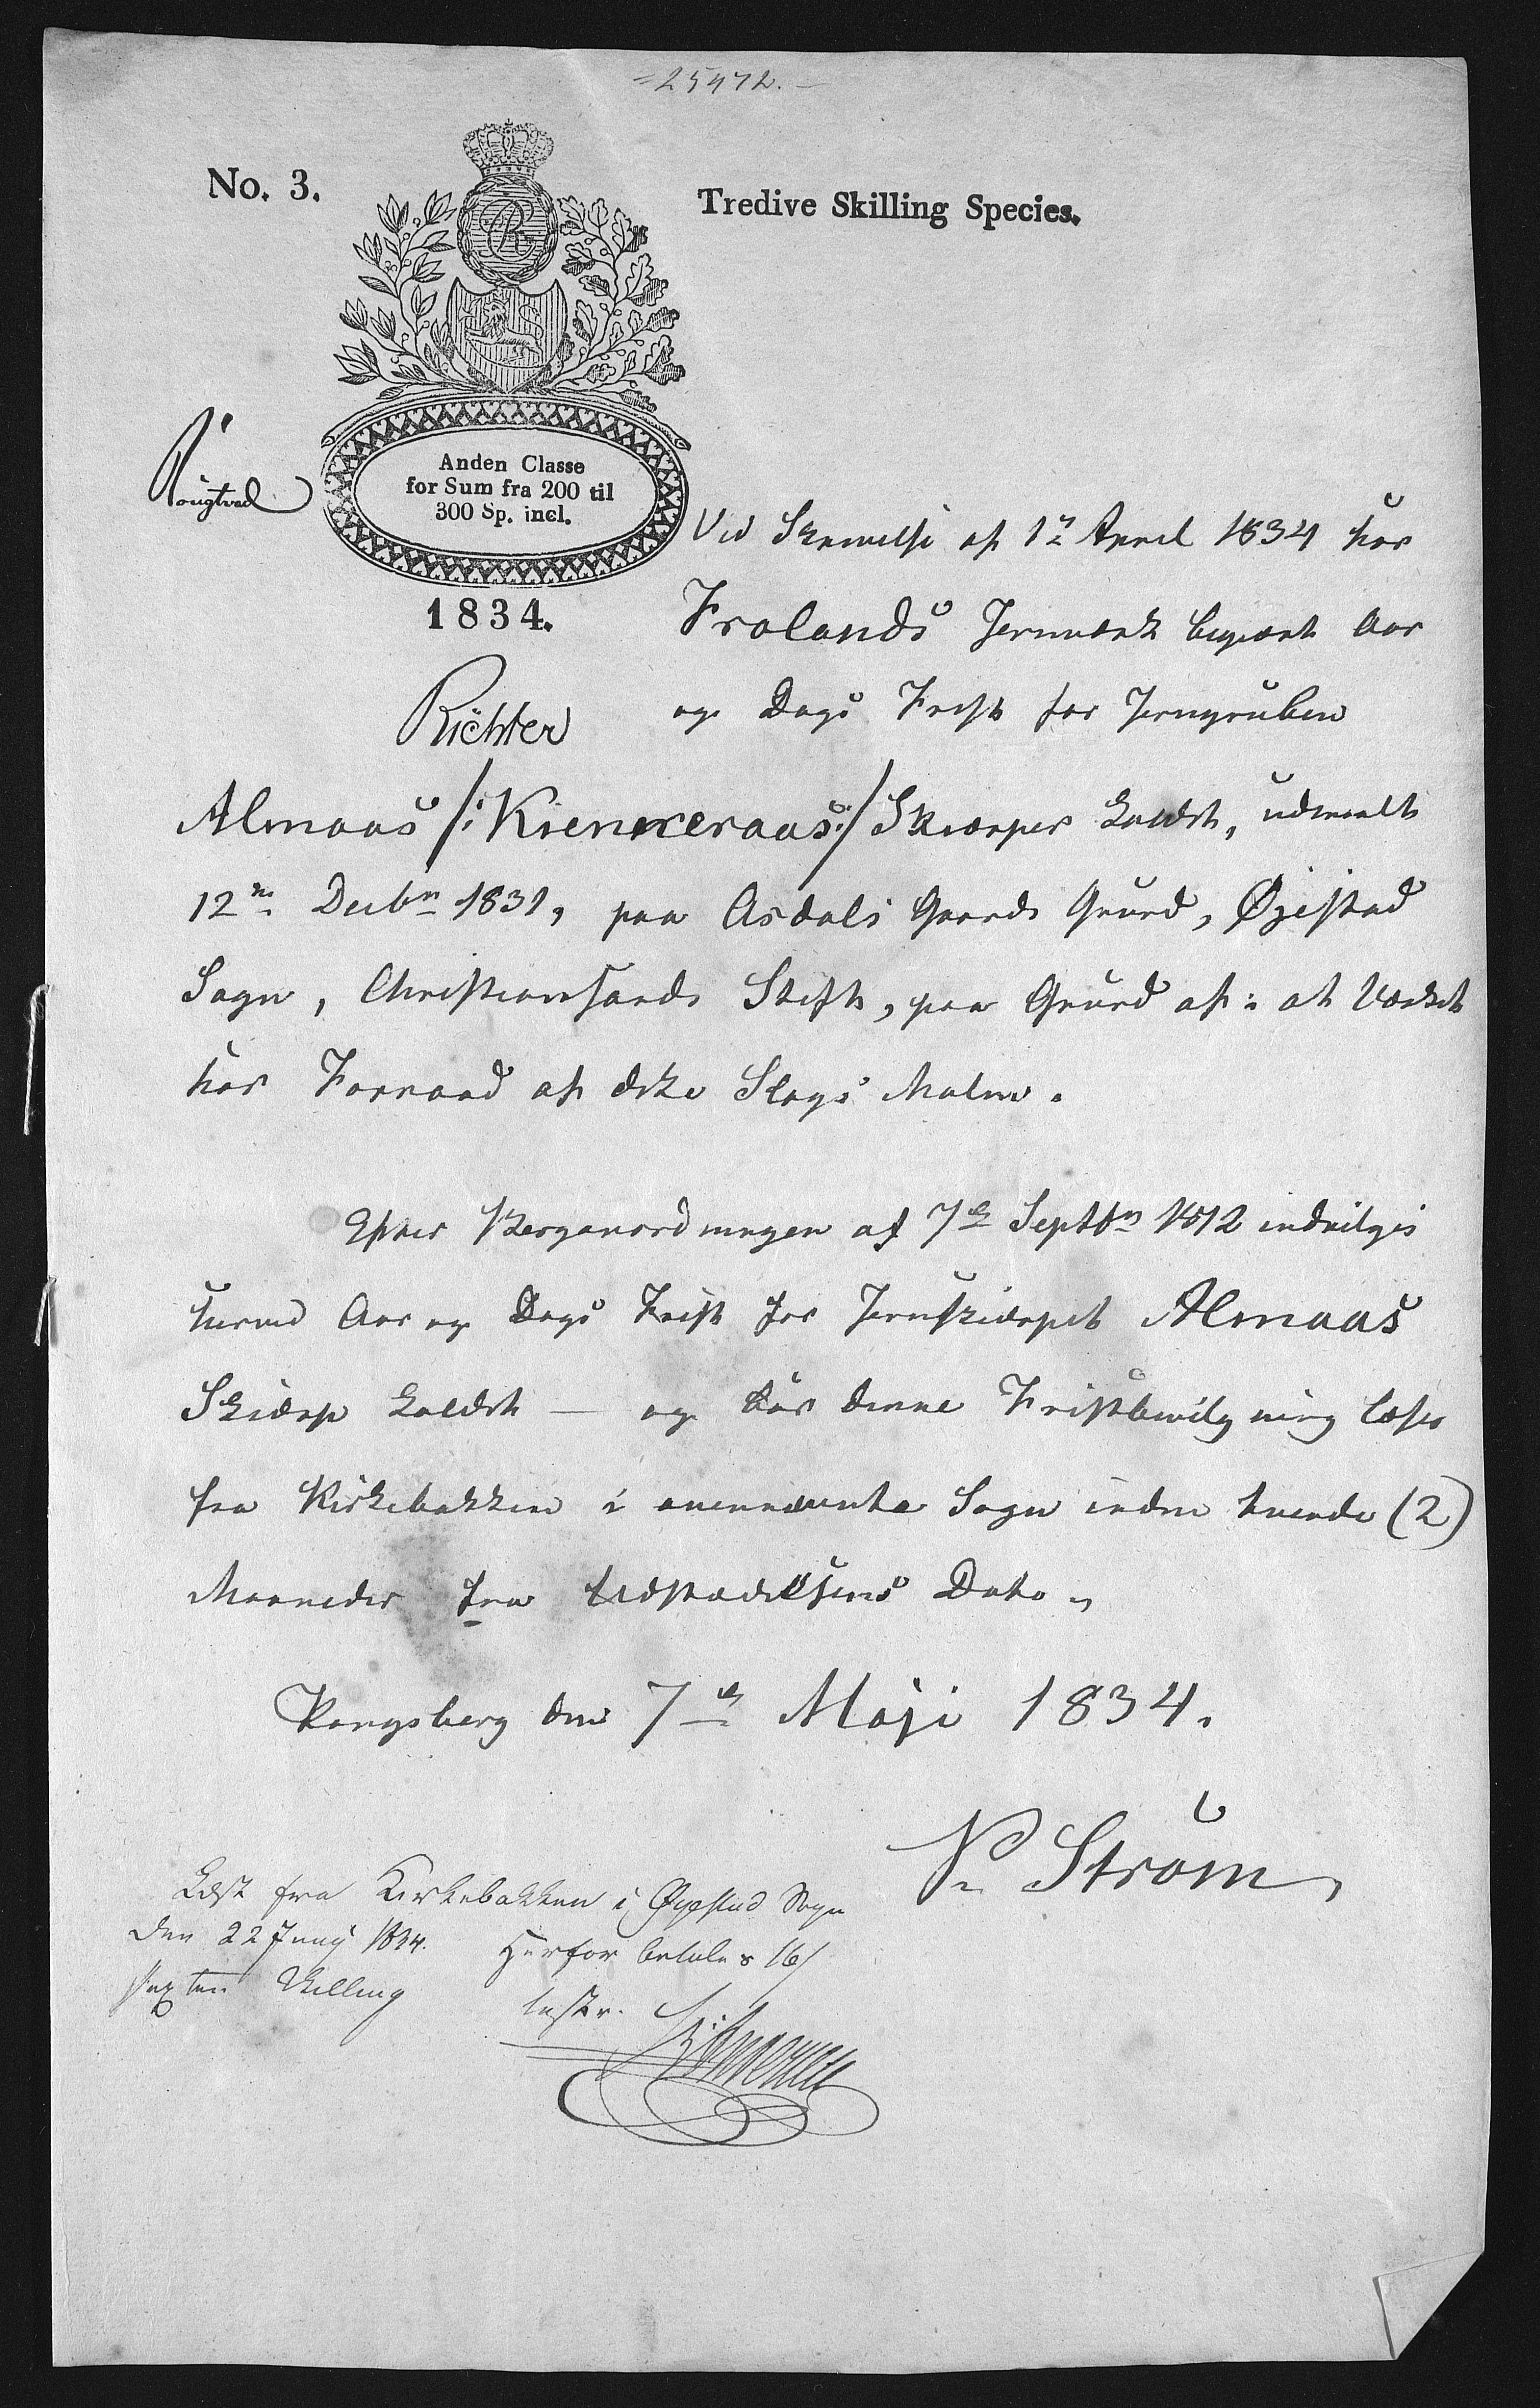 =25472.–
No. 3.
Tredive Skilling Species.
R
Anden Classe
for Sum fra 200 til
300 Sp. incl.
1834.
Rougtved
Richter
Ved Skrivelse af 1ste April 1834 har
Frolands Jernværk begjært Aar
og Dags Frist for Jerngruben
Almaas /: Kienneraas :/ Skiærper kaldet, udmeelt
12te Decbr 1831, paa Asdals Gaards Grund, Øjestad
Sogn, Christiansands Stift, paa Grund af: at Værket
har Forraad af dette Slags Malm.
Efter Berganordningen af 7de Septbr 1812 indvilges
herved Aar og Dags Frist for Jernskiærpet Almaas
Skiærp kaldet — og bør denne Fristbevilgning læses
fra Kirkebakken i ommeldte Sogn inden tvende (2)
Maaneder fra Udstædelsens Dato.
Kongsberg den 7de Maji 1834.
P. Strøm
Læst fra Kirkebakken i Øyestad Sogn
den 22 Junij 1834. Herfor betales 16/
sexten Skilling